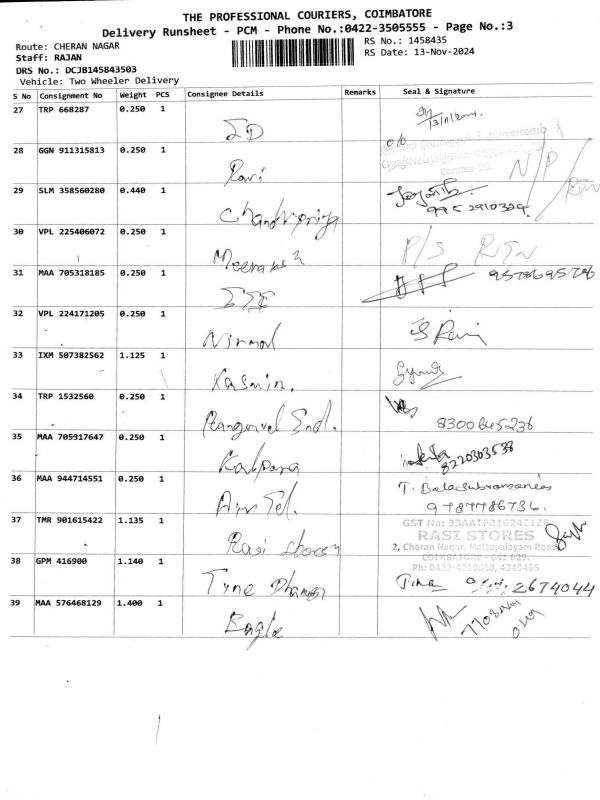 THE PROFESSIONAL COURIERS, COIMBATORE
Delivery Runsheet - PCM - Phone No.:0422-3505555 - Page No.:3
Route: CHERAN NAGAR
RS No.: 1458435
Staff: RAJAN
RS Date: 13-Nov-2024
DRS No.: DCJB145843503
Vehicle: Two Wheeler Delivery
S No Consignment No Weight PCS Consignee Details Remarks Seal & Signature
27 TRP 668287 0.250 1
13/11/2024.
ID
28 GGN 911315813 0.250 1
Ravi N/P / RTN
29 SLM 358560280 0.440 1
Chandrpriya
30 VPL 225406072 0.250 1
P/S RTN
31 MAA 705318185 0.250 1
32 VPL 224171205 0.250 1
Nirmal
33 IXM 507382562 1.125 1
Kasmin.
34 TRP 1532560 0.250 1
Rangavel Ind. 8300645236
35 MAA 705917647 0.250 1
8220303538
Kalpana
36 MAA 944714551 0.250 1
T. Balasubramanian
Air Tel. 9787786736.
37 TMR 901615422 1.135 1
RASI STORES
2, Cheran Nagar, Mettupalayam Road
COIMBATORE - 641 029.
38 GPM 416900 1.140 1
2674044
39 MAA 576468129 1.400 1
Eagle